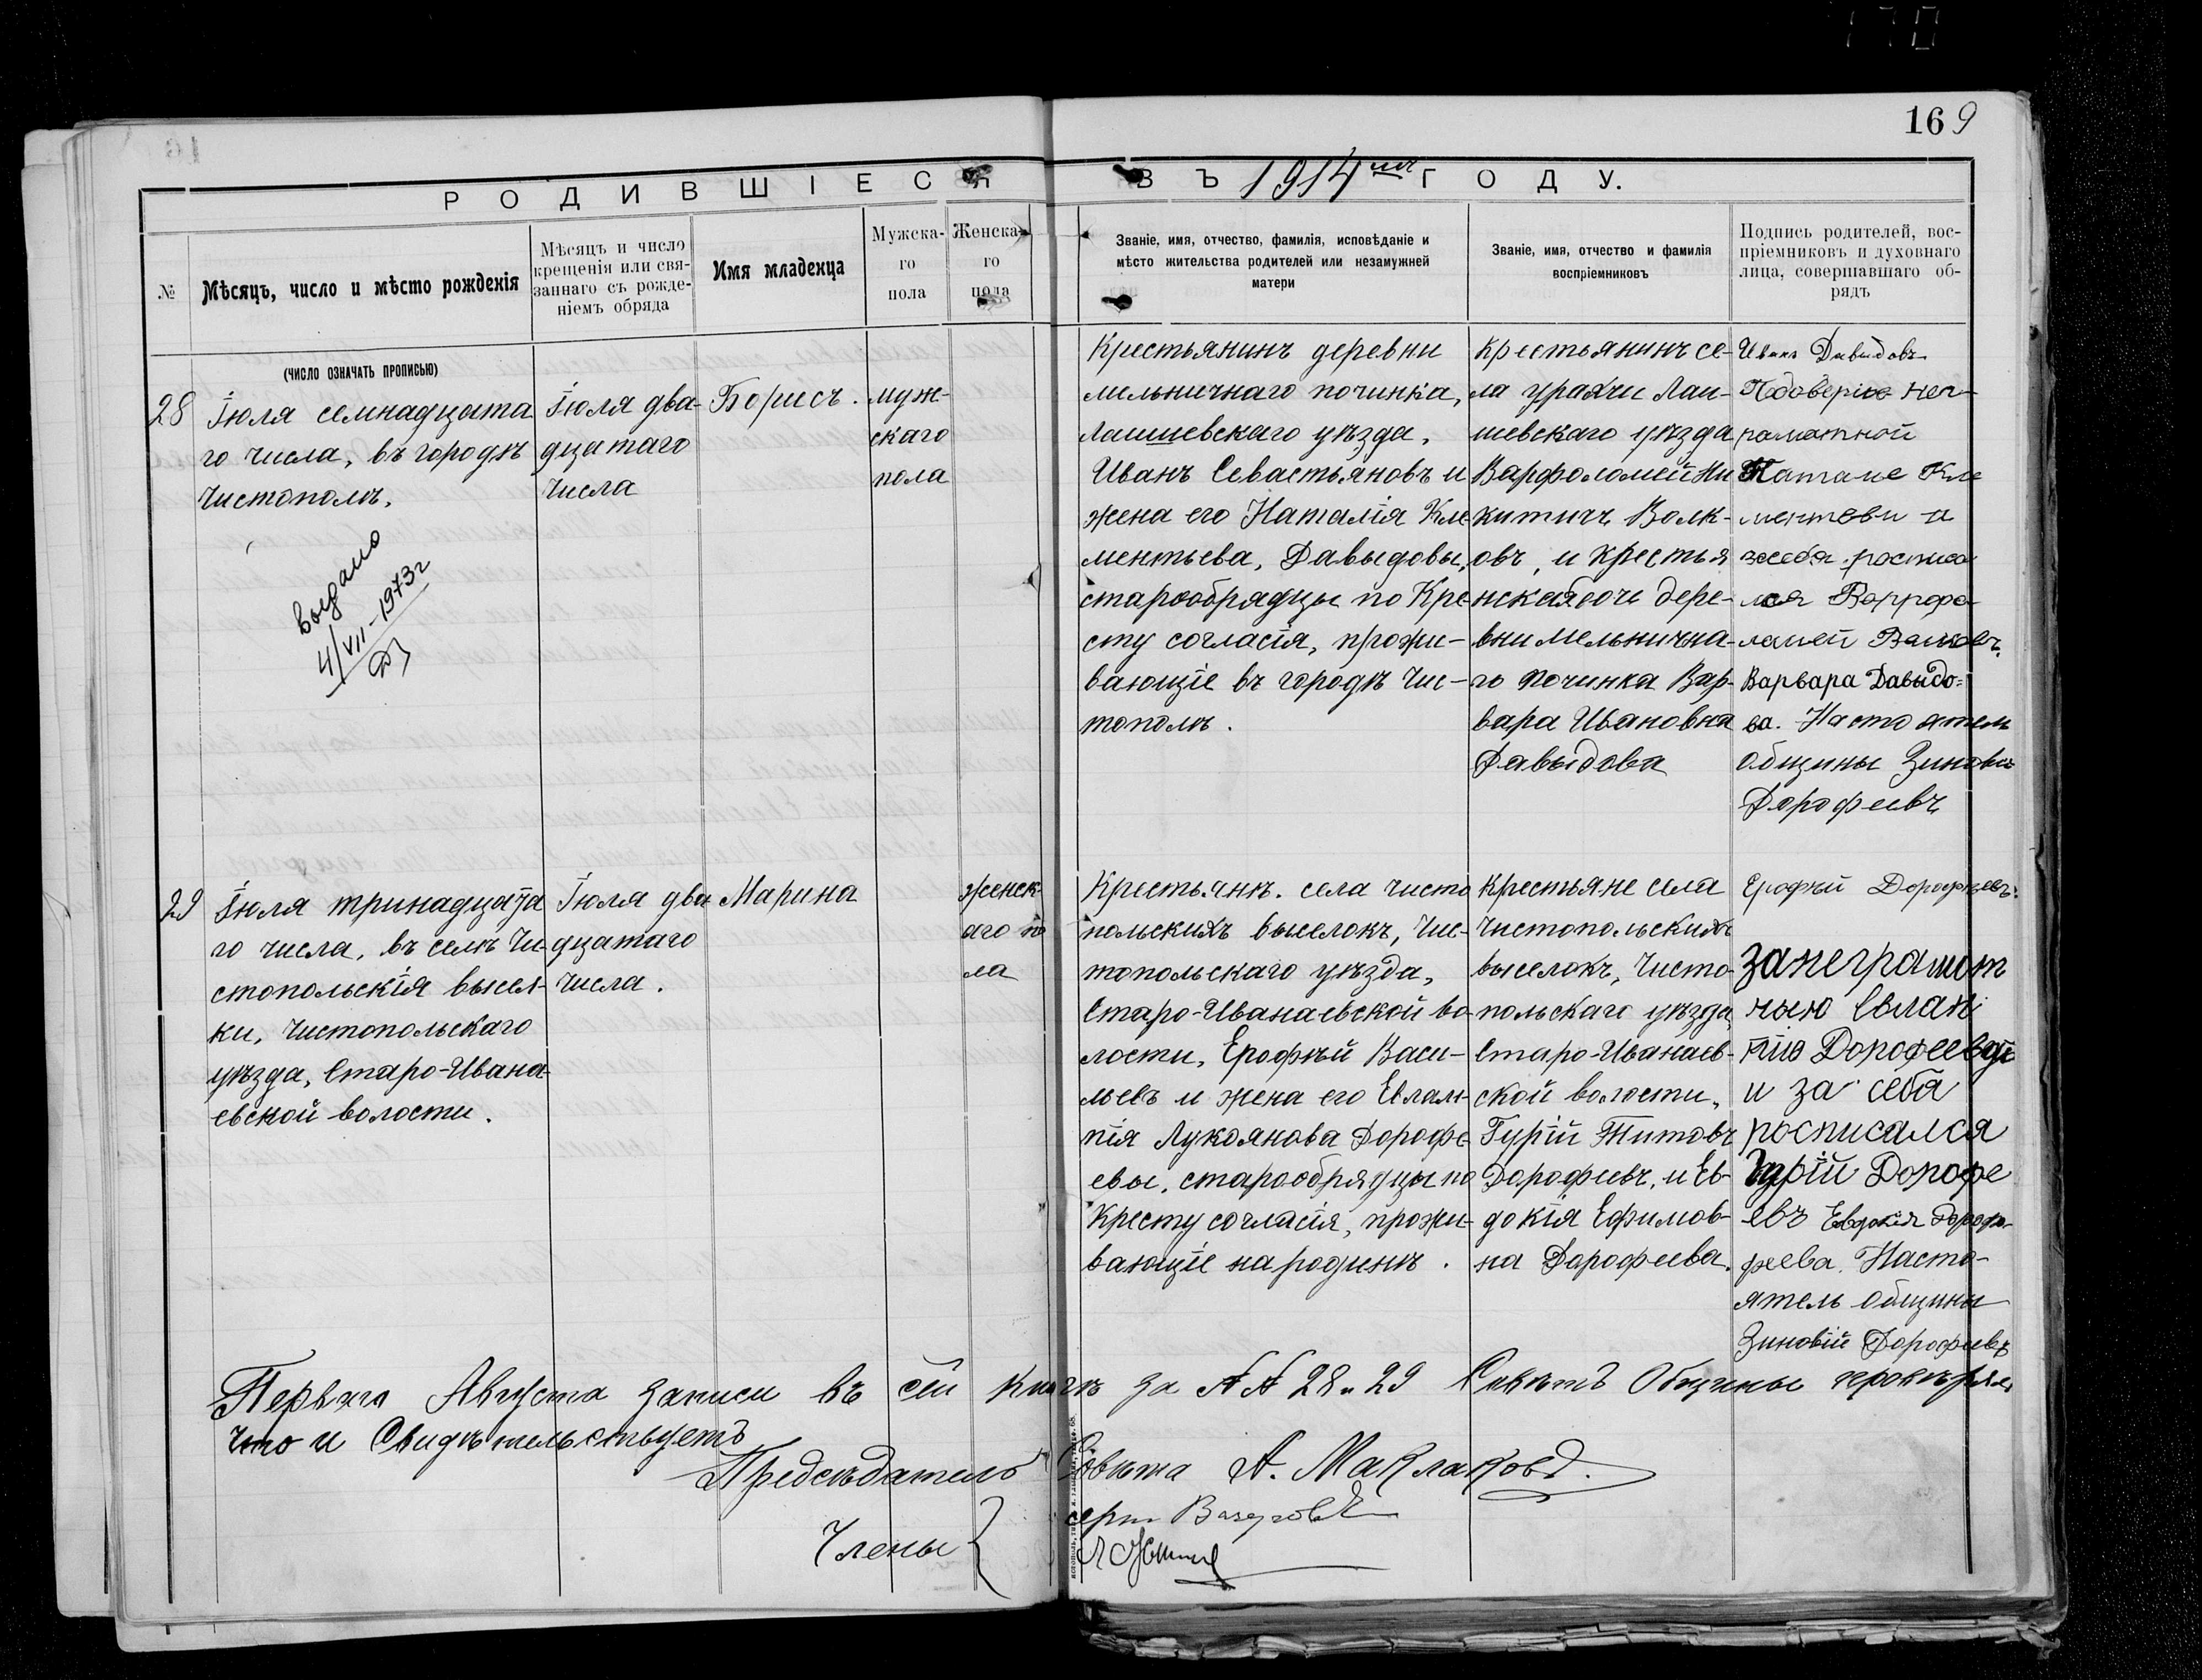 169
РОДИВШІЕСЯ ВЪ 1914мъ ГОДУ.
№
Мѣсяцъ, число и мѣсто рожденія
Мѣсяцъ и число
крещенія или свя-
заннаго съ рожде-
ніемъ обряда
Имя младенца
Мужска-
го
пола
Женска-
го
пола
Званіе, имя, отчество, фамилія, исповѣданіе и
мѣсто жительства родителей или незамужней
матери
Званіе, имя, отчество и фамилія
воспріемниковъ
Подпись родителей, вос-
пріемниковъ и духовнаго
лица, совершавшаго об-
рядъ
(ЧИСЛО ОЗНАЧАТЬ ПРОПИСЬЮ)
28
Іюля семнадцата
го числа, въ городѣ
Чистополѣ.
Іюля два-
дцатаго
числа
Борисъ.
муж-
скаго
пола
Крестьянинъ деревни
мельничнаго починка,
Лаишевскаго уѣзда,
Иванъ Севастьяновъ и
жена его Наталія Кле-
ментьева, Давыдовы,
старообрядцы по Кре-
сту согласія, прожи-
вающіе въ городѣ Чис-
тополѣ.
Крестьянинъ се-
ла урахчи Лаи-
шевскаго уѣзда
Варфоломей Ни
китичъ Волк-
овъ, и крестья
нская дочь дере-
вни мельнична-
го починка Вар-
вара Ивановна
Давыдова
Иванъ Давыдовъ
Подоверию нег-
рамотной
Наталие Кле
ментеви и
засебя росписа
лся Варфо-
ламей Валковъ.
Варвара Давыдо-
ва. Настоятель
общины Зиновій
Дорофеевъ
выдано
4/VII-1973г
29
Іюля тринадцата
го числа, въ селѣ Чи-
стопольскія высел-
ки, Чистопольскаго
уѣзда, Старо-Ивана-
евской волости.
Іюля два-
дцатаго
числа.
Марина
женск-
аго по
ла
Крестьянѣ. села чисто
польскихъ выселокъ, Чис-
топольскаго уѣзда,
Старо-Иванаевской во-
лости, Ерофѣй Васи-
льевъ и жена его Евлам-
пія Лукоянова Дорофе-
евы, старообрядцы по
Кресту согласія, прожи-
вающіе на родинѣ.
Крестьяне села
Чистопольскихъ
выселокъ, Чисто-
польскаго уѣзда,
Старо-Иванаев-
ской волости,
Гурій Титовъ
Дорофеевъ, и Ев-
докія Ефимов-
на Дорофеева.
Ерофѣй Дорофѣевъ
занеграмот
ную Евлан
пию Дорофееву
и за себа
росписался
Гурій Дорофе
евъ Евдокія Доро-
феева. Насто-
ятель общины
Зиновій Дорофеевъ
Перваго Августа записи въ сей книгѣ за №№ 28 и 29 Совѣтъ Общины провѣрялъ
что и Свидѣтельствуетъ
Предсѣдатель Совѣта А. Маклаковъ.
Члены